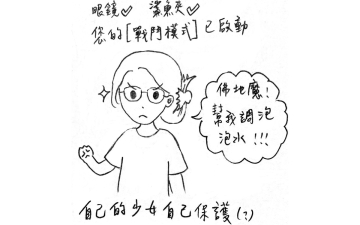 眼鏡✓ 鯊魚夾✓
您的[戰鬥模式]已啟動
佛地魔!
幫我調泡
泡水!!!
自己的少女自己保護(?)